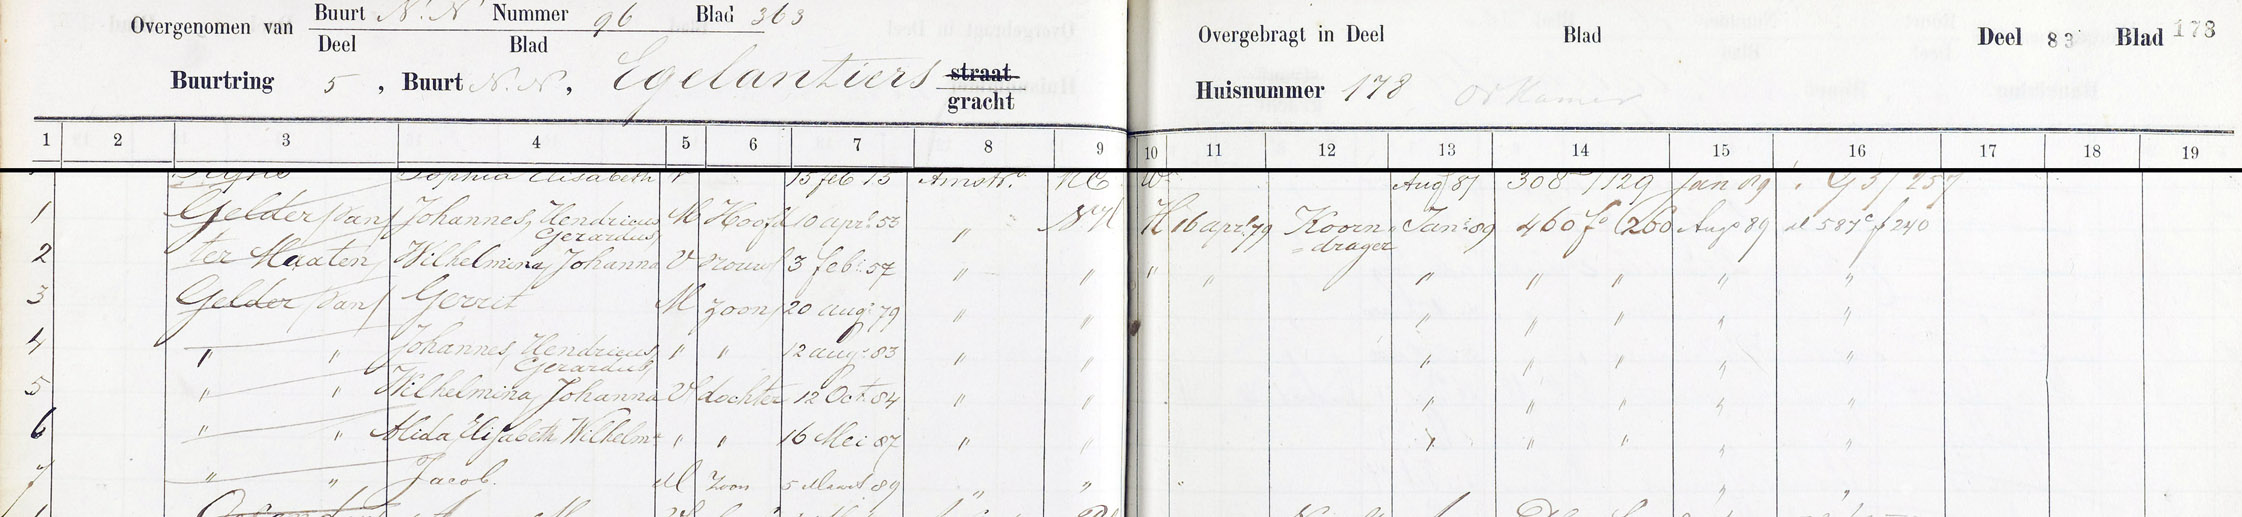 Overgenomen van Buurt N.N Nummer 96 Blad 363
Deel Blad
Buurtring 5, Buurt N.N, Egelantiers straat
gracht
Overgebragt in Deel Blad Deel 83 Blad 178
Huisnummer 178 Vr Kamer
1 2 3 4 5 6 7 8 9 10 11 12 13 14 15 16 17 18 19
Sophia Elisabeth V 15 feb 13 Amst. NC W Aug 87 308 /129 Jan 89 G3/257
1 Gelder (van) Johannes, Hendricus M Hoofd 10 apr. 53 " NH H 16 apr. 79 Koorn= Jan. 89 460 fo 260 Aug 89 dl 587 f 240
Gerardus, =drager
2 ter Maaten, Wilhelmina, Johanna V vrouw 3 feb. 57 " " " " " " " " "
3 Gelder (van) Gerrit M zoon 20 aug. 79 " " " " " " "
4 " " Johannes, Hendricus, " " 12 aug. 83 " " " " " " "
Gerardus,
5 " " Wilhelmina, Johanna V dochter 12 Oct. 84 " " " " " " "
6 " " Alida Elisabeth Wilhelm= " " 16 Mei 87 " " " " " " "
7 " " Jacob. M Zoon 5 Maart 89 " " " "